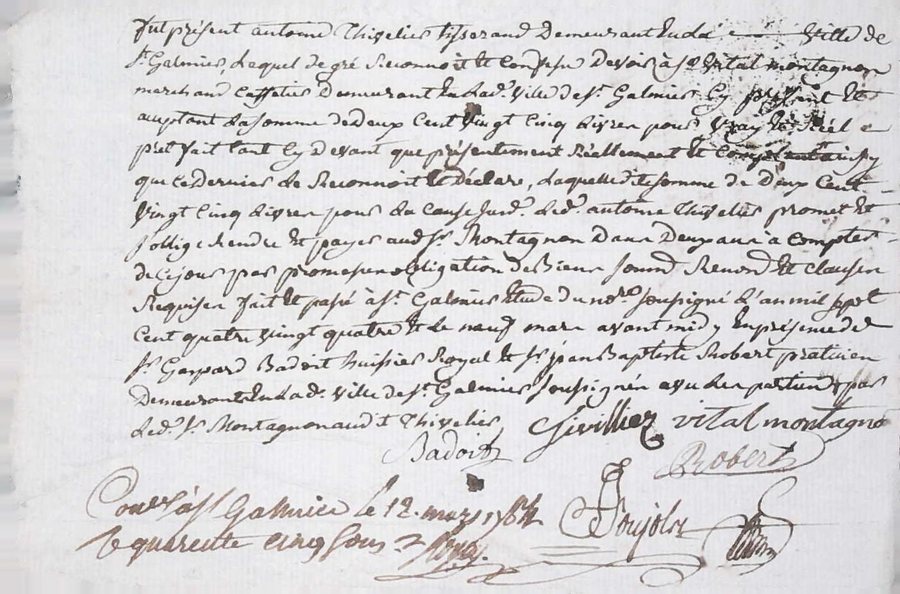 fut présent antoine Thivelier tisserand demeurant en la ville de
St. Galmier, Lequel de gré Reconnoit et Confesse devoir à Sr. vital montagnon
marchand Caffetier Demeurant en lad. Ville de St. Galmier Cy présent et
acceptant La somme de deux Cent vingt Cinq Livres pour vray et Réel
pret fait tant Cy Devant que présentement Réellement et Comptant ainsy
que Ce Dernier Le Reconnoit et Déclare, Laquelle ditte somme de Deux Cent
vingt Cinq Livres pour La Cause susd. Led. antoine Thivelier promet et
s'oblige Rendre et payer aud. Sr. Montagnon Dans Deux ans à Compter
de Ce jour par promesse obligation de Biens soum. Renond. et Clauses
Requises fait et passé à St. Galmier Etude du nore. soussigné L'an mil sept
Cent quatre vingt quatre et Le neuf mars avant midy En présence de
Sr. Gaspard Badoit huissier Royal et Sr. jean Baptiste Robert praticien
Demeurants en Lad. Ville de St. Galmier soussignés avec les parties par
Led. Sr. Montagnon aud. Thivelier
Badoit vital montagnon
Robert
Con.lé à St. Galmier le 12. mars 1784
R quarente cinq sous